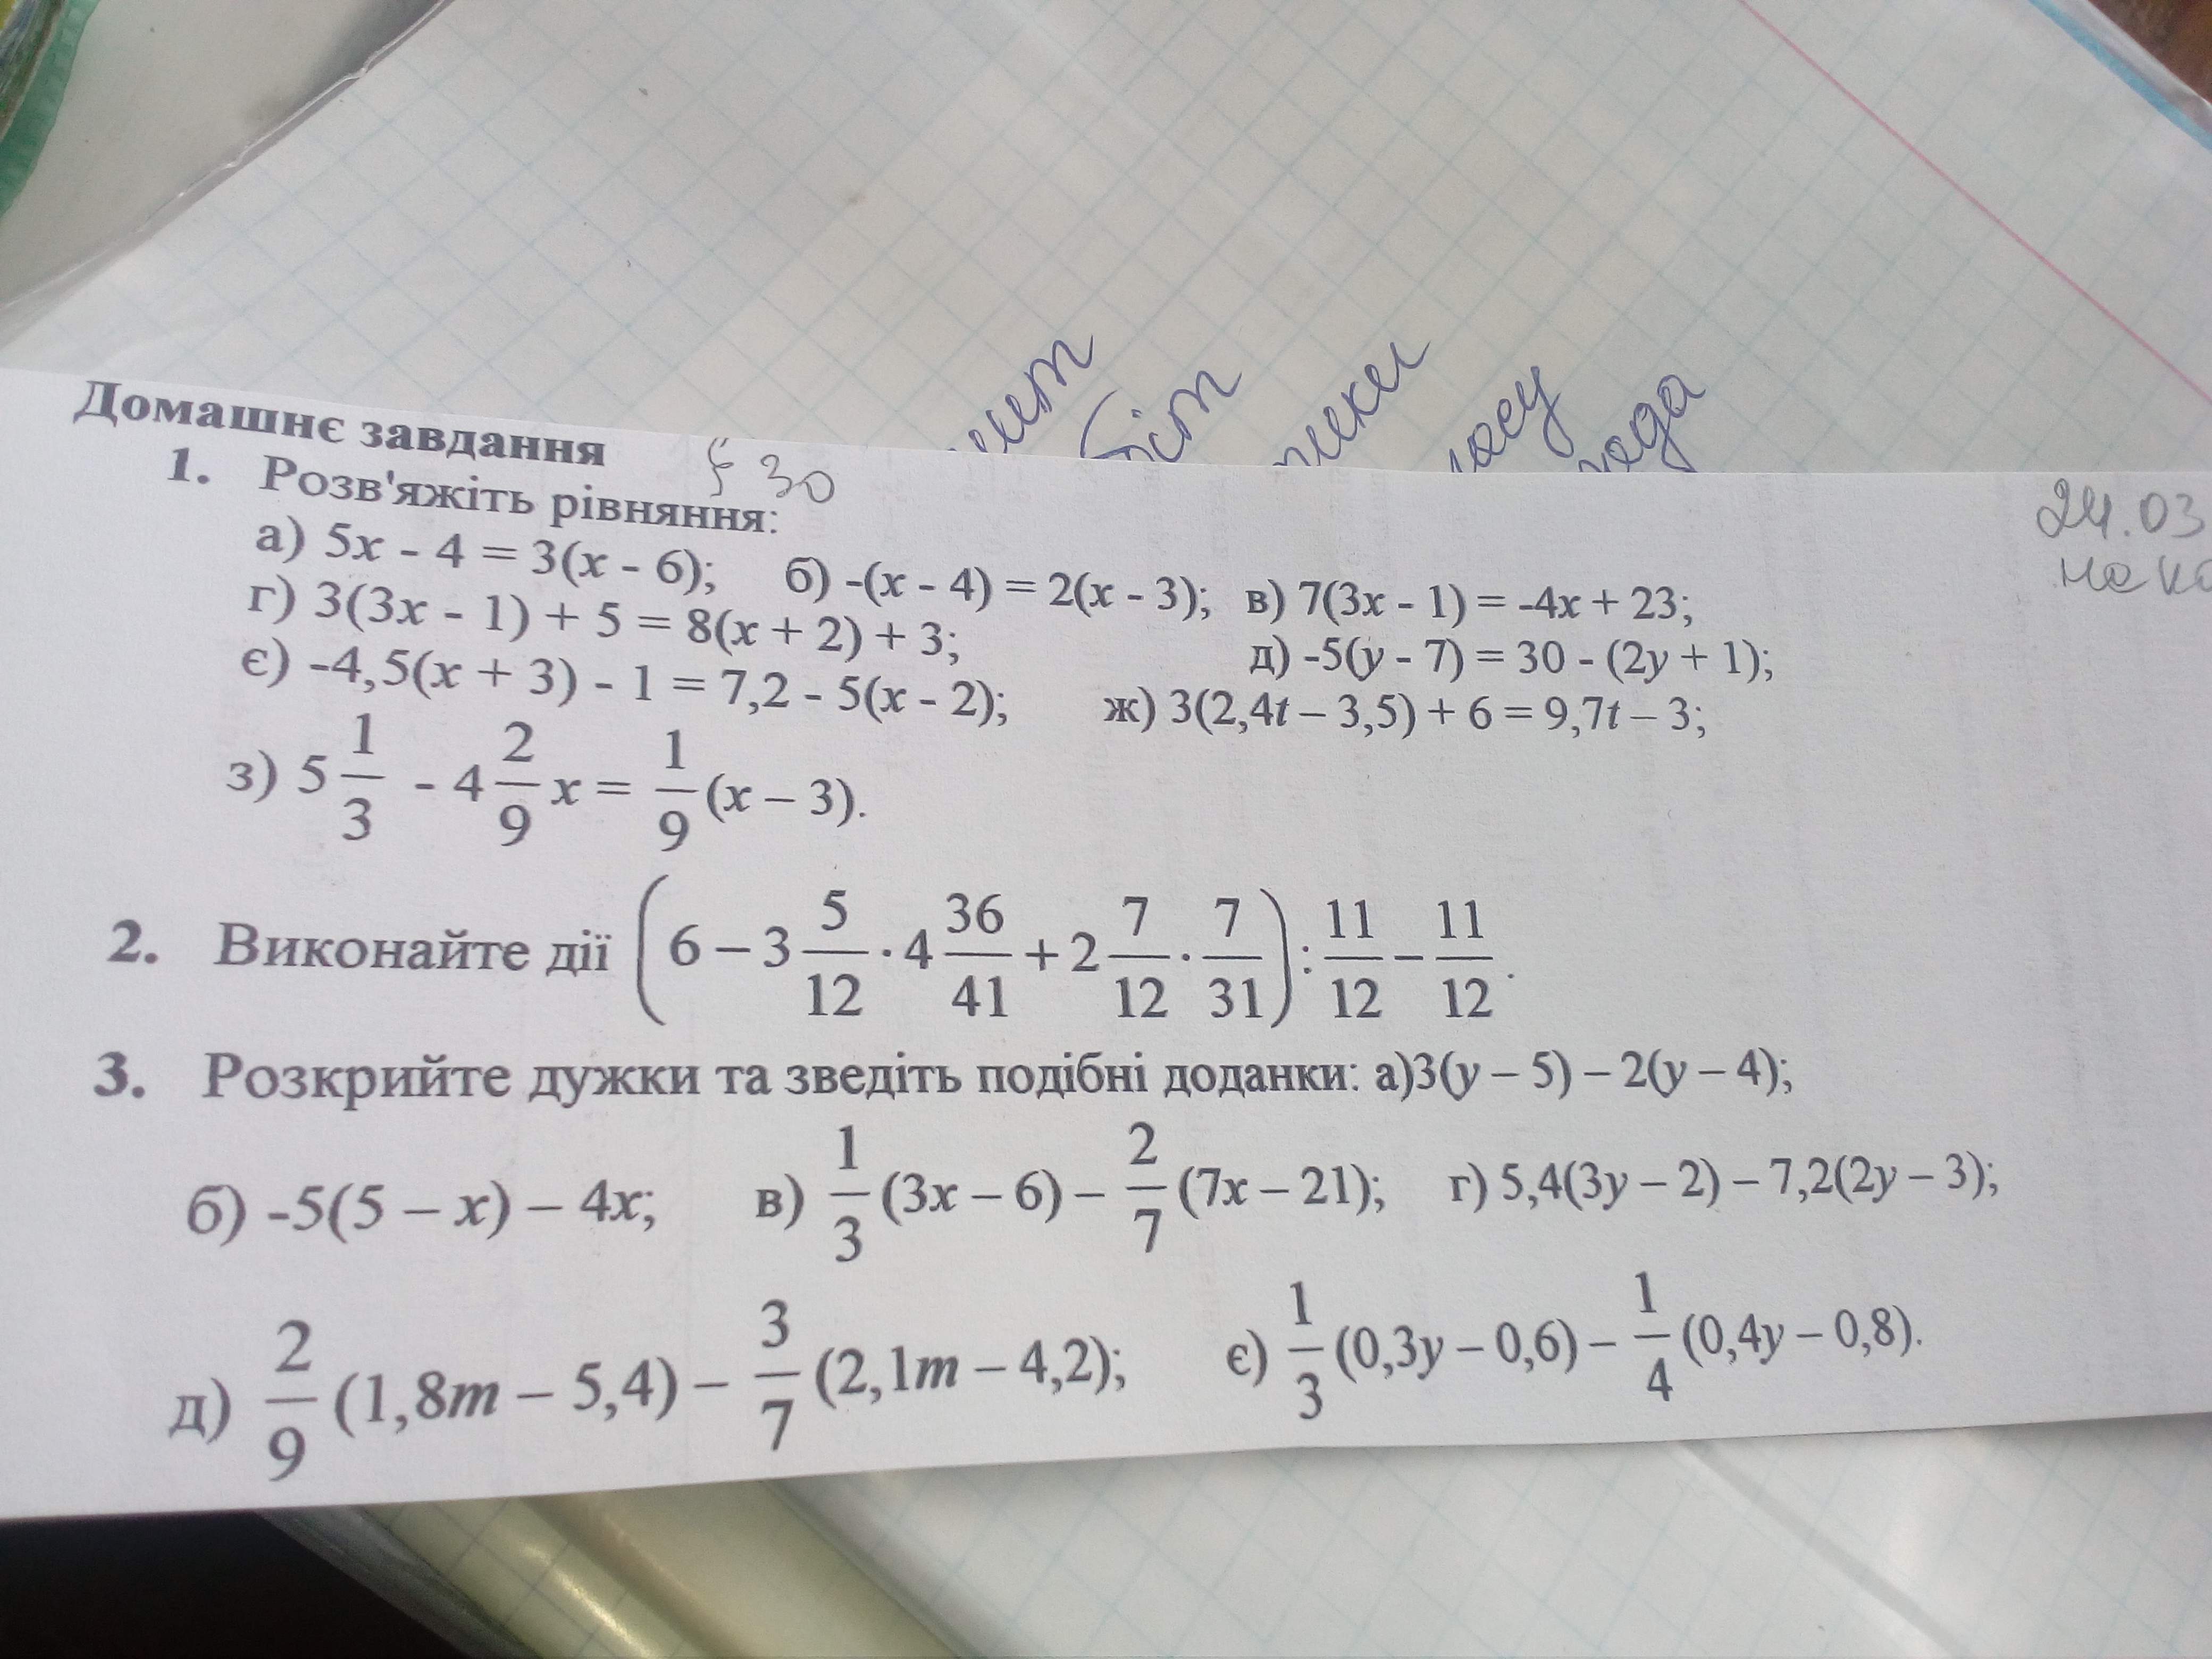 Домашнє завдання
§ 30
24.03
1. Розв'яжіть рівняння:
а) 5x - 4 = 3(x - 6); б) -(x - 4) = 2(x - 3); в) 7(3x - 1) = -4x + 23;
г) 3(3x - 1) + 5 = 8(x + 2) + 3; д) -5(y - 7) = 30 - (2y + 1);
є) -4,5(x + 3) - 1 = 7,2 - 5(x - 2); ж) 3(2,4t – 3,5) + 6 = 9,7t – 3;
з) 5 1/3 - 4 2/9 x = 1/9 (x – 3).
2. Виконайте дії (6 – 3 5/12 · 4 36/41 + 2 7/12 · 7/31) : 11/12 – 11/12.
3. Розкрийте дужки та зведіть подібні доданки: а)3(y – 5) – 2(y – 4);
б) -5(5 – x) – 4x; в) 1/3 (3x – 6) – 2/7 (7x – 21); г) 5,4(3y – 2) – 7,2(2y – 3);
д) 2/9 (1,8m – 5,4) – 3/7 (2,1m – 4,2); є) 1/3 (0,3y – 0,6) – 1/4 (0,4y – 0,8).